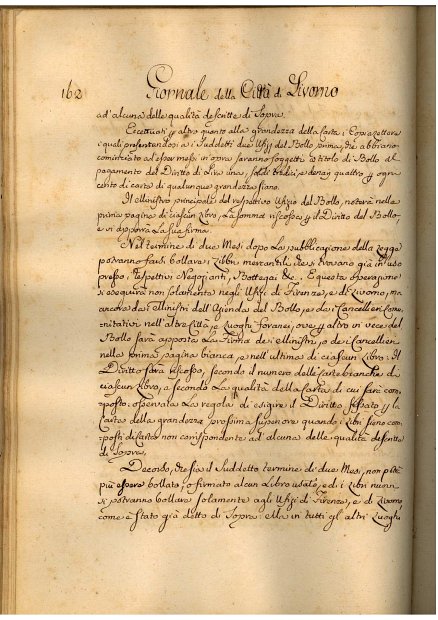 162 Giornale della Città di Livorno
ad'alcuna delle qualità descritte di Sopra.
Eccettuati p altro quanto alla grandezza della Carta i Copialettere
i quali presentandosi a i Suddetti due Ufizj del Bollo prima, che abbiano
cominciato ad esser messi in opra saranno soggetti a titolo di Bollo al
pagamento del Diritto di Lire una, soldi tredici, e denari quattro p ogni
cento di carte di qualunque grandezza siano.
Il Ministro principale del respettivo Ufizio del Bollo, noterà nella
prima pagina di ciascun Libro, La somma riscossa p il Diritto del Bollo,
e vi apporrà La sua firma.
Nel termine di due Mesi dopo La pubblicazione della Legge
potranno farsi bollare i Libri mercantili, che si trovano già in uso
presso i respettivi Negozianti, Bottegai &c. E questa operazione
si eseguirà non solamente negli Ufizi di Firenze, e di Livorno, ma
ancora da i Ministri dell'Azienda del Bollo, e da i Cancellieri Comu-
nitativi nell'altre Città, e Luoghi foranei, ove p altro in vece del
Bollo sarà apposta La Firma de i Ministri, o de i Cancellieri
nella prima pagina bianca, e nell'ultima di ciascun Libro: Il
Diritto sarà riscosso, secondo il numero delle Carte bianche di
ciascun Libro, e secondo La qualità della Carta di cui sarà com-
posto: osservata La regola di esigere il Diritto fissato p la
Carta della grandezza prossima superiore quando i Libri siano com-
posti di Carta non corrispondente ad alcuna delle qualità descritte
di Sopra.
Decorso, che sia il Suddetto termine di due Mesi, non potrà
più essere bollato, o firmato alcun Libro usato, ed i Libri nuovi
si potranno bollare solamente agli Ufizi di Firenze, e di Livorno
come è Stato già detto di Sopra: Ma in tutti gl' altri Luoghi